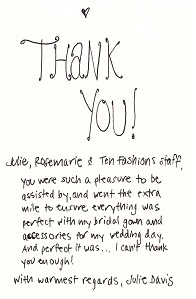 THANK
YOU!
Julie, Rosemarie & Ten Fashions staff,
You were such a pleasure to be
assisted by, and went the extra
mile to ensure everything was
perfect with my bridal gown and
accessories for my wedding day.
And perfect it was... I can't thank
you enough!
with warmest regards, Julie Davis